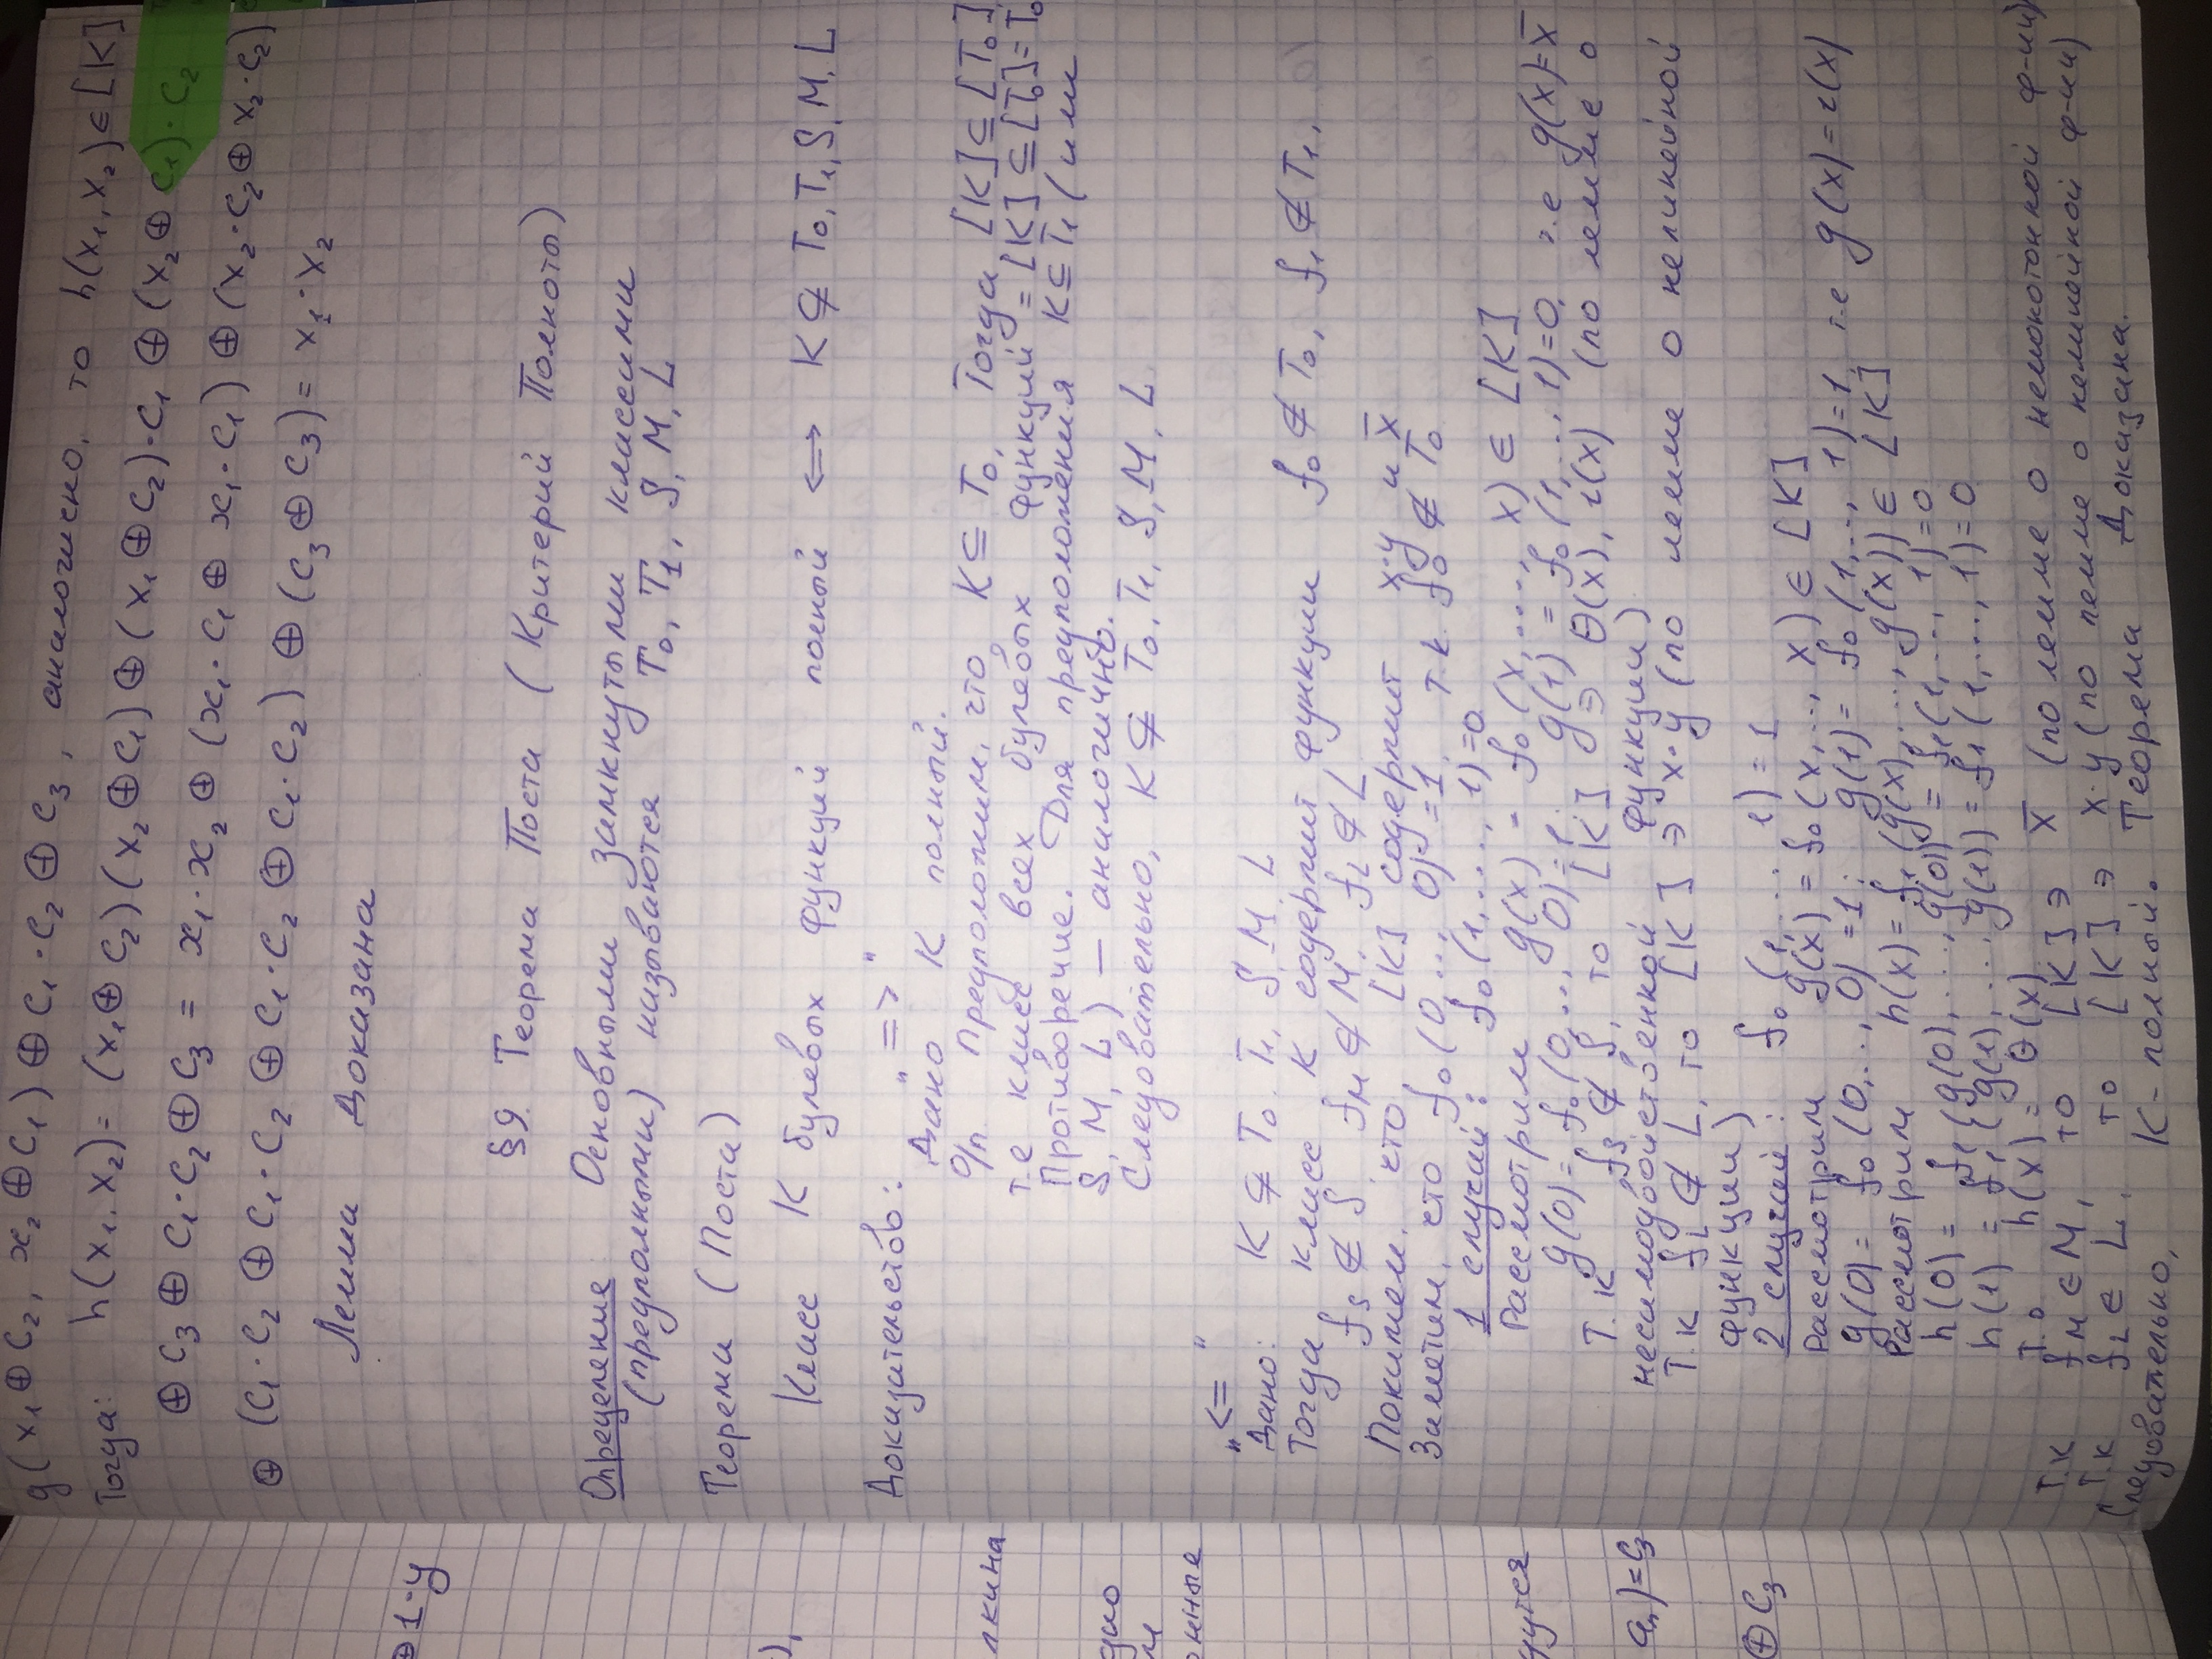 g(x₁ ⊕ c₂, x₂ ⊕ c₁) ⊕ c₁·c₂ ⊕ c₃, аналогично, то h(x₁, x₂) ∈ [K]
Тогда: h(x₁, x₂) = (x₁ ⊕ c₂)(x₂ ⊕ c₁) ⊕ (x₁ ⊕ c₂)·c₁ ⊕ (x₂ ⊕ c₁)·c₂
⊕ c₃ ⊕ c₁·c₂ ⊕ c₃ = x₁·x₂ ⊕ (x₁·c₁ ⊕ x₁·c₁) ⊕ (x₂·c₂ ⊕ x₂·c₂)
⊕ (c₁·c₂ ⊕ c₁·c₂ ⊕ c₁·c₂ ⊕ c₁·c₂) ⊕ (c₃ ⊕ c₃) = x₁·x₂
Лемма Доказана
§9. Теорема Поста (Критерий Полноты)
Определение Основными замкнутыми классами
(предполными) называются T₀, T₁, S, M, L
Теорема (Поста)
Класс K булевых функций полный ⟺ K ⊈ T₀, T₁, S, M, L
Доказательство: „=>“
Дано K полный.
О/п. Предположим, что K ⊆ T₀, Тогда [K] ⊆ [T₀]
т.е класс всех булевых функций = [K] ⊆ [T₀] = T₀
Противоречие. Для предположения K ⊆ T₁ (или
S, M, L) — аналогично.
Следовательно, K ⊈ T₀, T₁, S, M, L
„<=“
Дано: K ⊈ T₀, T₁, S, M, L
Тогда, класс K содержит функции f₀ ∉ T₀, f₁ ∉ T₁,
f_S ∉ S, f_M ∉ M, f_L ∉ L
Покажем, что, [K] содержит x·y и x̅
Заметим, что f₀(0,..., 0) = 1, т.к. f₀ ∉ T₀
1 случай: f₀(1,...., 1) = 0
Рассмотрим g(x) = f₀(x,...., x) ∈ [K]
g(0) = f₀(0,..., 0) = 1; g(1) = f₀(1,..., 1) = 0, т.е g(x) = x̅
Т.к f_S ∉ S, то [K] ∋ θ(x), ι(x) (по лемме о
несамодвойственной функции)
Т.к f_L ∉ L, то [K] ∋ x·y (по лемме о нелинейной
функции)
2 случай: f₀(1,... 1) = 1
Рассмотрим g(x) = f₀(x,..., x) ∈ [K]
g(0) = f₀(0,..., 0) = 1; g(1) = f₀(1,..., 1) = 1, т.е g(x) = ι(x)
Рассмотрим h(x) = f₁(g(x),...., g(x)) ∈ [K]
h(0) = f₁(g(0),...., g(0)) = f₁(1,..., 1) = 0
h(1) = f₁(g(1),... g(1)) = f₁(1,..., 1) = 0
т.о h(x) = θ(x)
Т.к f_M ∈ M, то [K] ∋ x̅ (по лемме о немонотонной ф-ии)
Т.к f_L ∈ L, то [K] ∋ x·y (по лемме о нелинейной ф-ии)
Следовательно, K - полный. Теорема Доказана.
⊕ 1·y
),
лкина
дно
м
онные
дутся
aₙ) = c₃
⊕ c₃